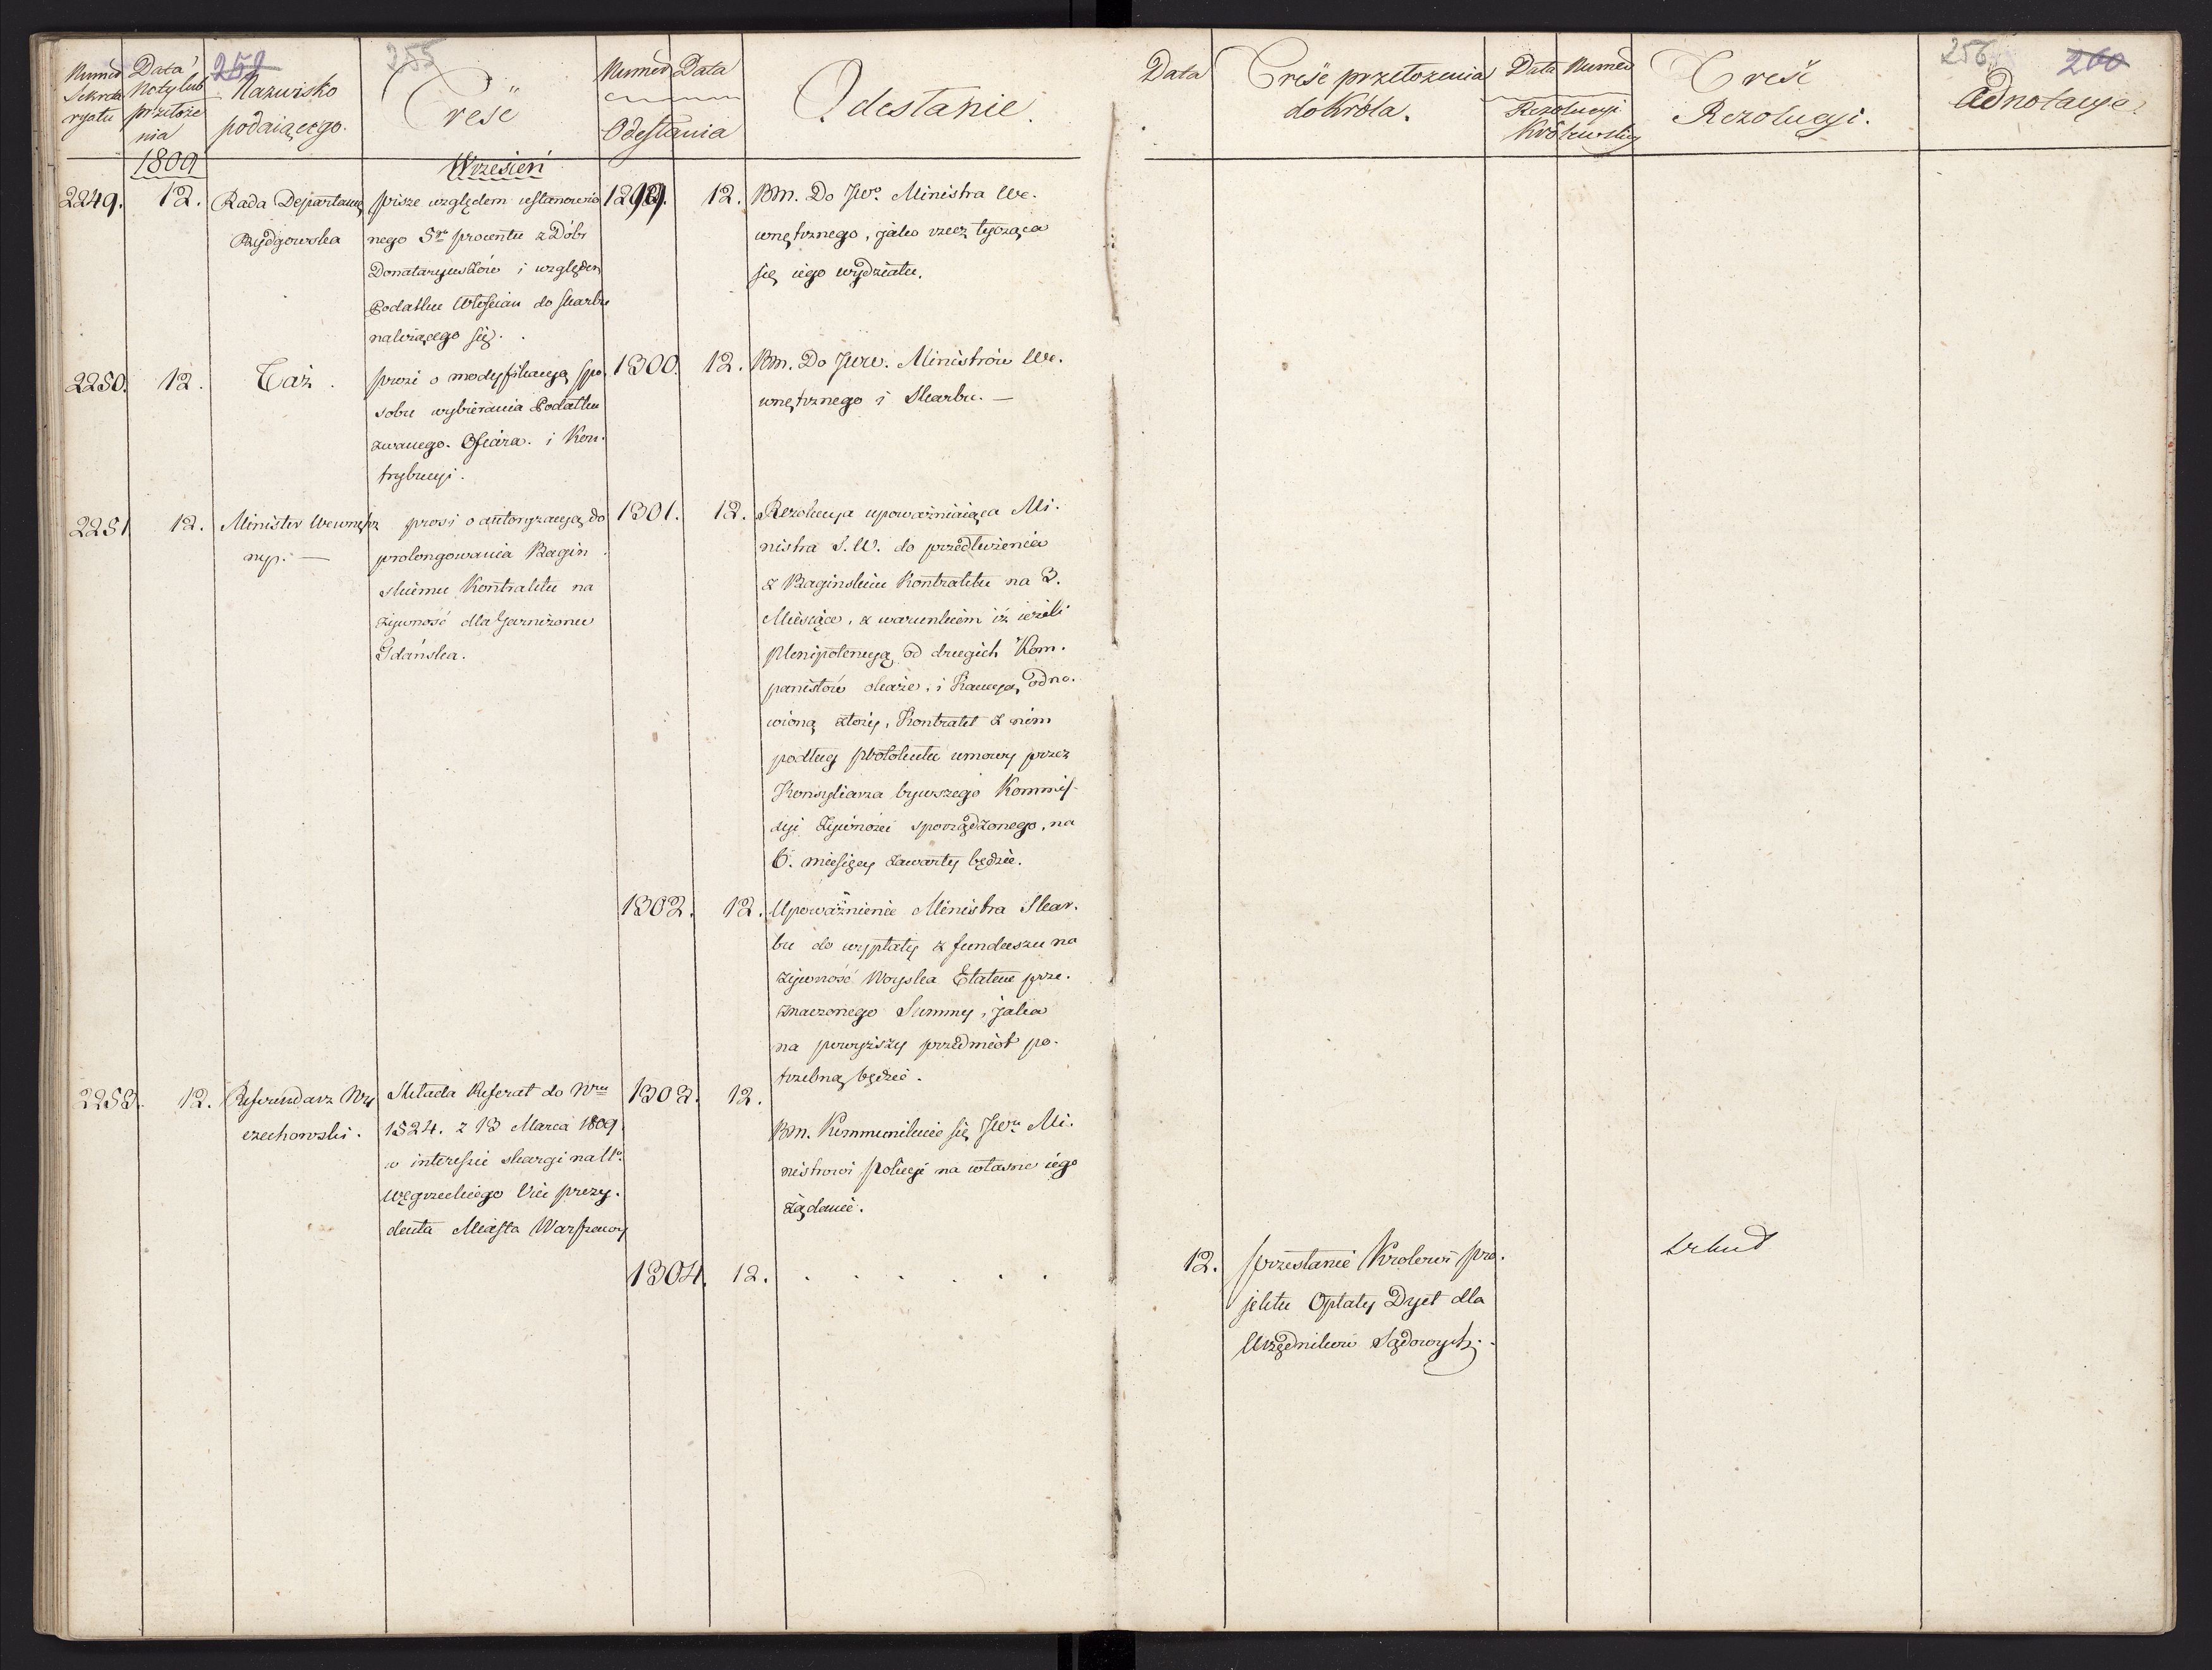 Numer Sekretaryatu
Data Noty lub przełożenia
Nazwisko podaiącego.
Treść
Numer Data Odesłania
Odesłanie.
Data
Treść przełożenia do Króla.
Data Numer Rezolucyi Królewskiey
Treść Rezolucyi.
Adnotacye.
259
255
256
260
1809
Wrzesień
2249. 12.
Rada Departam.
Bydgowska
pisze względem ustanowio
nego 5go procentu z Dóbr
Donataryuszów i względem
Podatku Włościan do skarbu
należącego się.
1299. 12.
Bm. Do JWo. Ministra We.
wnętrznego, jako rzecz tycząca
się iego wydziału.
2250. 12.
Taż.
prosi o modyfikacyą spo.
sobu wybierania Podatku
zwanego. Ofiara. i Kon.
trybucyi.
1300. 12.
Bm. Do JWW. Ministrów We.
wnętrznego i Skarbu. —
2251 12.
Minister Wewnętrz
ny. —
prosi o autoryzacyą do
prolongowania Bagin
skiemu Kontraktu na
żywność dla Garnizonu
Gdańska.
1301. 12.
Rezolucya upoważniaiąca Mi.
nistra S. W. do przedłużenia
z Baginskim Kontraktu na 3.
Miesiące, z warunkiem iż ieżeli
plenipotencyą od drugich Kom.
panistów okaże, i Kaucyą odno.
wioną złoży, Kontrakt z nim
podług protokułu umowy przez
Konsyliarza bywszego Kommis-
syi żywności sporządzonego, na
6. miesięcy zawarty będzie.
1302. 12.
Upoważnienie Ministra Skar.
bu do wypłaty z funduszu na
żywność Woyska Etatem prze.
znaczonego Summy, jaka
na powyższy przedmiot po.
trzebną będzie.
2253. 12.
Referendarz Wy
czechowski.
Składa Referat do Nru
1524. z 13 Marca 1809
w interessie skargi na Uo.
węgrzeckiego Vice prezy.
denta Miasta Warszawy
1303. 12.
Bm. Kommunikuie się JWu Mi.
nistrowi Policyi na własne iego
żądanie.
1304. 12. . . . . . .
12. przesłanie Krolowi pro.
jektu Opłaty Dyet dla
Urzędników Sądowych.